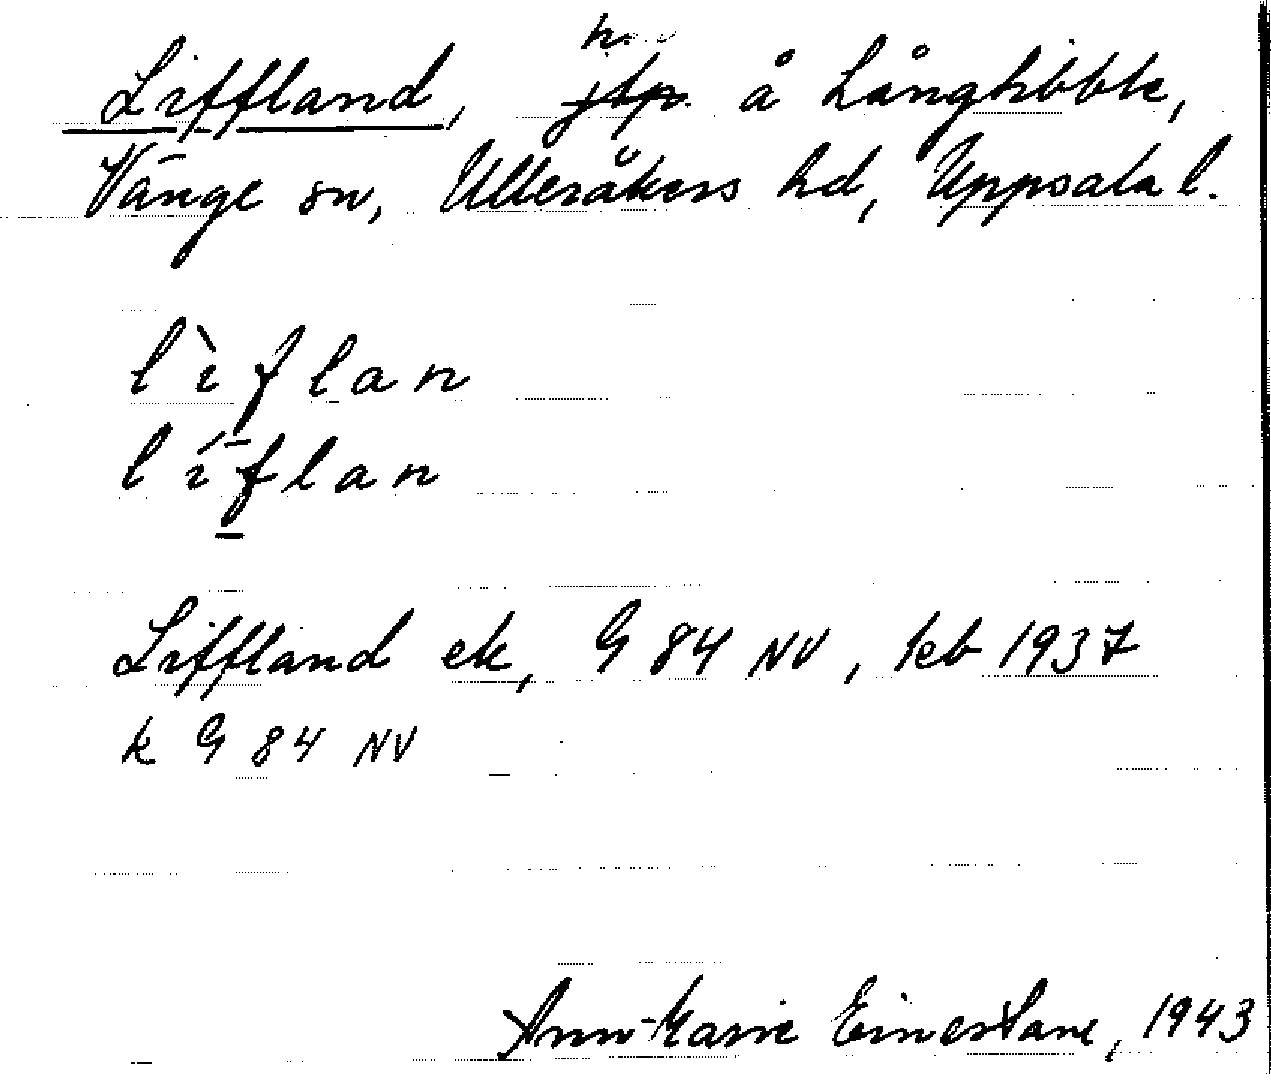 Liffland, jtp. å Långtibble,
Vänge sn, Ulleråkers hd, Uppsala l.
lìflan
líflan
Liffland ek, G 84 NV, keb 1937
k G 84 NV
Ann-Marie Einerstam, 1943